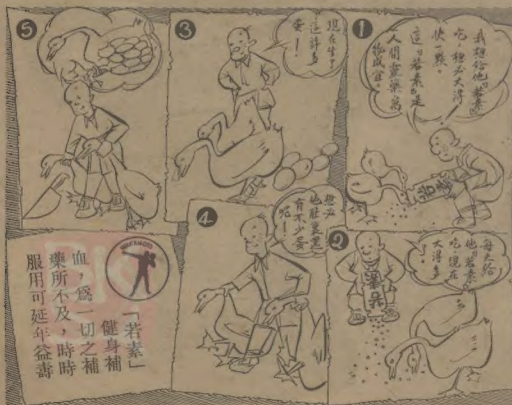 ❶
我想給他「若素」
吃，想必大得
快一點。
這「若素」是
人間靈藥寫
❷
每天給
他「若素」
吃，現在
大得多
了。
若素
❸
現在生了
這許多
蛋！
❹
想必
他肚裏還
有不少蛋
呢！
❺
「若素」
健身補
血，爲一切之補
藥所不及，時時
服用可延年益壽